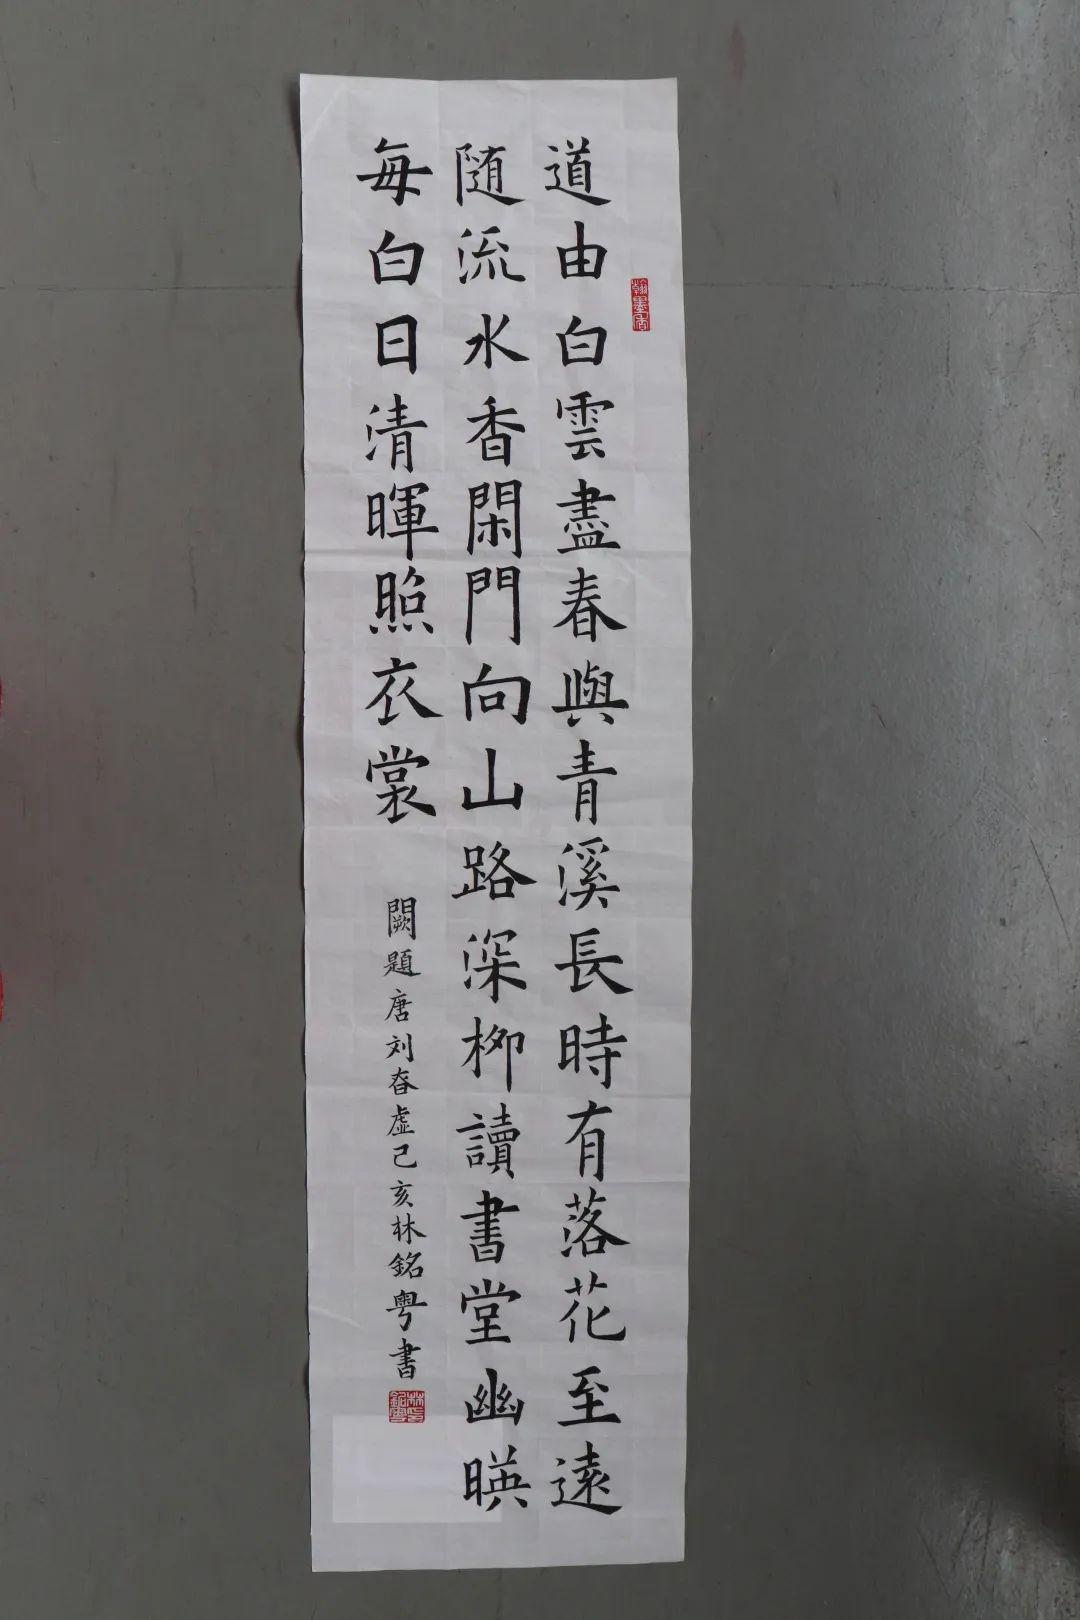 道由白雲盡春與青溪長時有落花至遠
随流水香閑門向山路深柳讀書堂幽暎
每白日清暉照衣裳
闕題唐刘昚虚己亥林銘粤書
翰墨居
林銘粤印